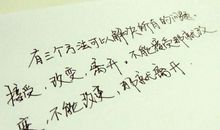 有三个方法可以解决所有的问题.
接受,改变,离开.不能接受那就改
变,不能改变,那就离开.